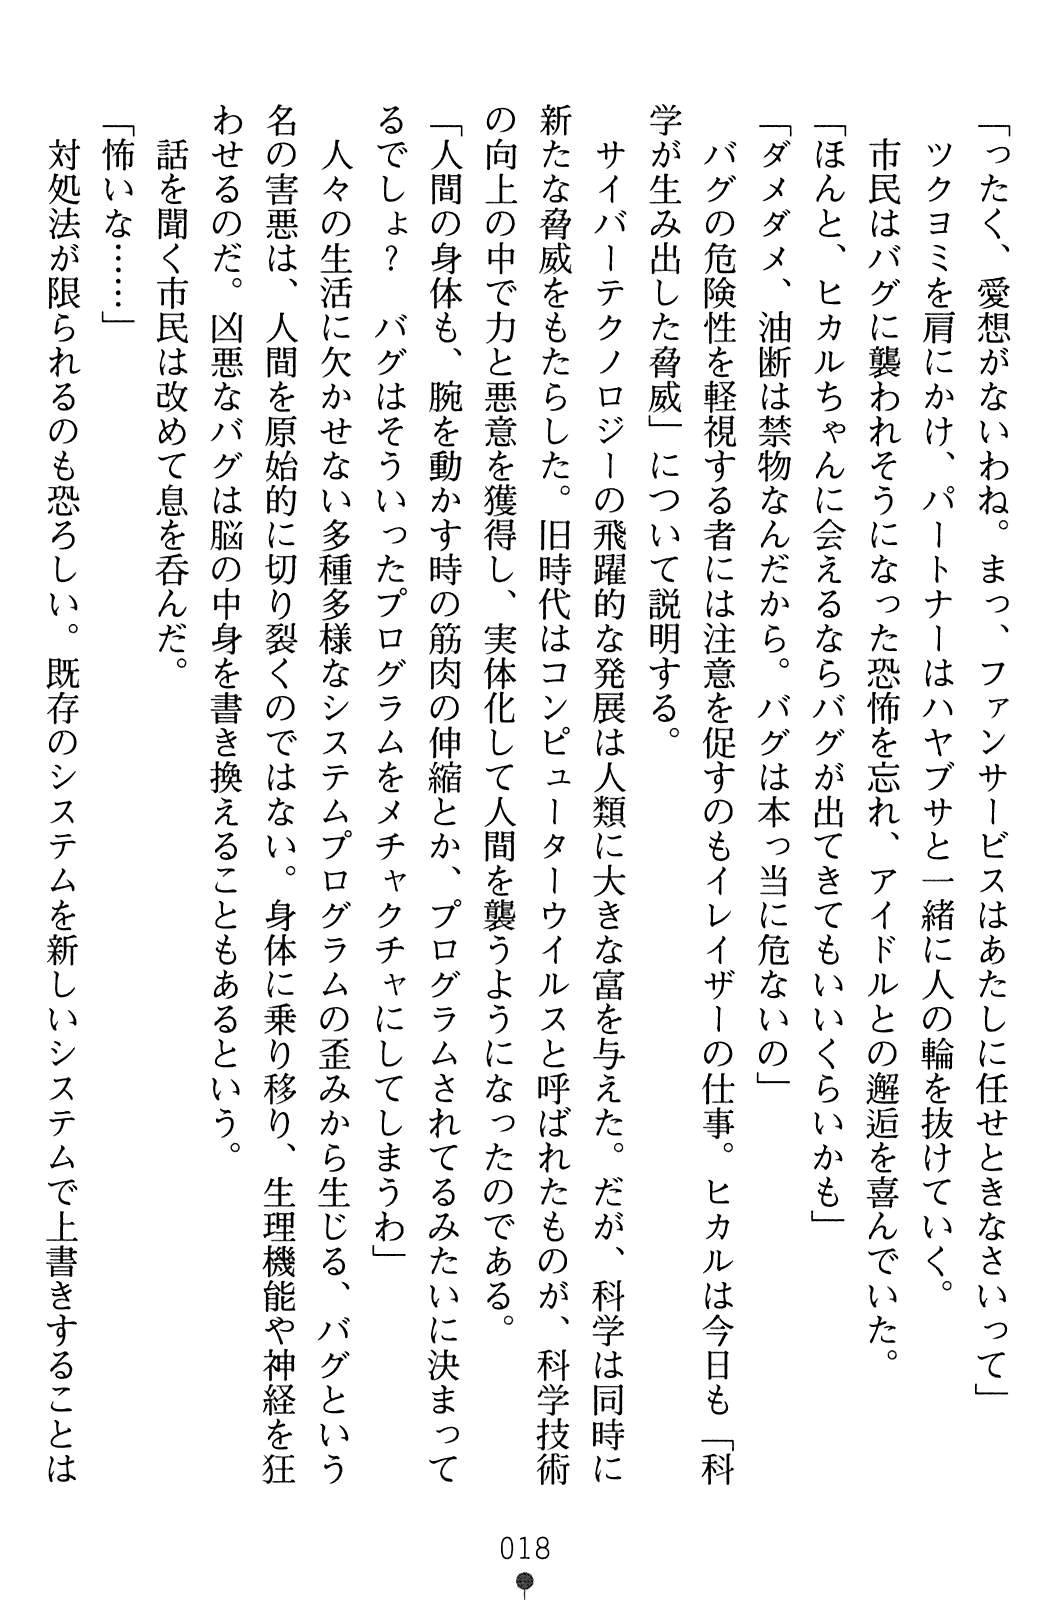 「ったく、愛想がないわね。まっ、ファンサービスはあたしに任せときなさいって」
ツクヨミを肩にかけ、パートナーはハヤブサと一緒に人の輪を抜けていく。
市民はバグに襲われそうになった恐怖を忘れ、アイドルとの邂逅を喜んでいた。
「ほんと、ヒカルちゃんに会えるならバグが出てきてもいいくらいかも」
「ダメダメ、油断は禁物なんだから。バグは本っ当に危ないの」
バグの危険性を軽視する者には注意を促すのもイレイザーの仕事。ヒカルは今日も「科
学が生み出した脅威」について説明する。
サイバーテクノロジーの飛躍的な発展は人類に大きな富を与えた。だが、科学は同時に
新たな脅威をもたらした。旧時代はコンピューターウイルスと呼ばれたものが、科学技術
の向上の中で力と悪意を獲得し、実体化して人間を襲うようになったのである。
「人間の身体も、腕を動かす時の筋肉の伸縮とか、プログラムされてるみたいに決まって
るでしょ？　バグはそういったプログラムをメチャクチャにしてしまうわ」
人々の生活に欠かせない多種多様なシステムプログラムの歪みから生じる、バグという
名の害悪は、人間を原始的に切り裂くのではない。身体に乗り移り、生理機能や神経を狂
わせるのだ。凶悪なバグは脳の中身を書き換えることもあるという。
話を聞く市民は改めて息を呑んだ。
「怖いな……」
対処法が限られるのも恐ろしい。既存のシステムを新しいシステムで上書きすることは
018